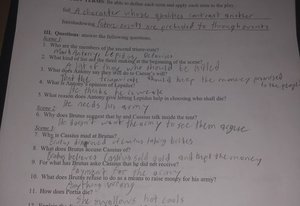 TERMS: Be able to define each term and apply each term to the play.
foil A character whose qualities contrast another
foreshadowing future events are predicted to through events
III. Questions: answer the following questions.
Scene 1:
1. Who are the members of the second triumvirate?
Mark Antony, Lepidus, Octavius
2. What kind of list are the three making at the beginning of the scene?
A list of those who should be killed
3. What does Antony say they will do to Caesar's will?
that the should keep the money promised to the people
4. What is Antony's opinion of Lepidus?
He thinks he is
5. What reason does Antony give letting Lepidus help in choosing who shall die?
He needs his army
Scene 2:
6. Why does Brutus suggest that he and Cassius talk inside the tent?
He doesn't want the army to see them argue
Scene 3:
7. Why is Cassius mad at Brutus?
Brutus taking bribes
8. What does Brutus accuse Cassius of?
Brutus believes Cassius sold gold and kept the money
9. For what has Brutus asked Cassius that he did not receive?
Payment for the army
10. What does Brutus refuse to do as a means to raise money for his army?
Anything wrong
11. How does Portia die?
She swallows hot coals